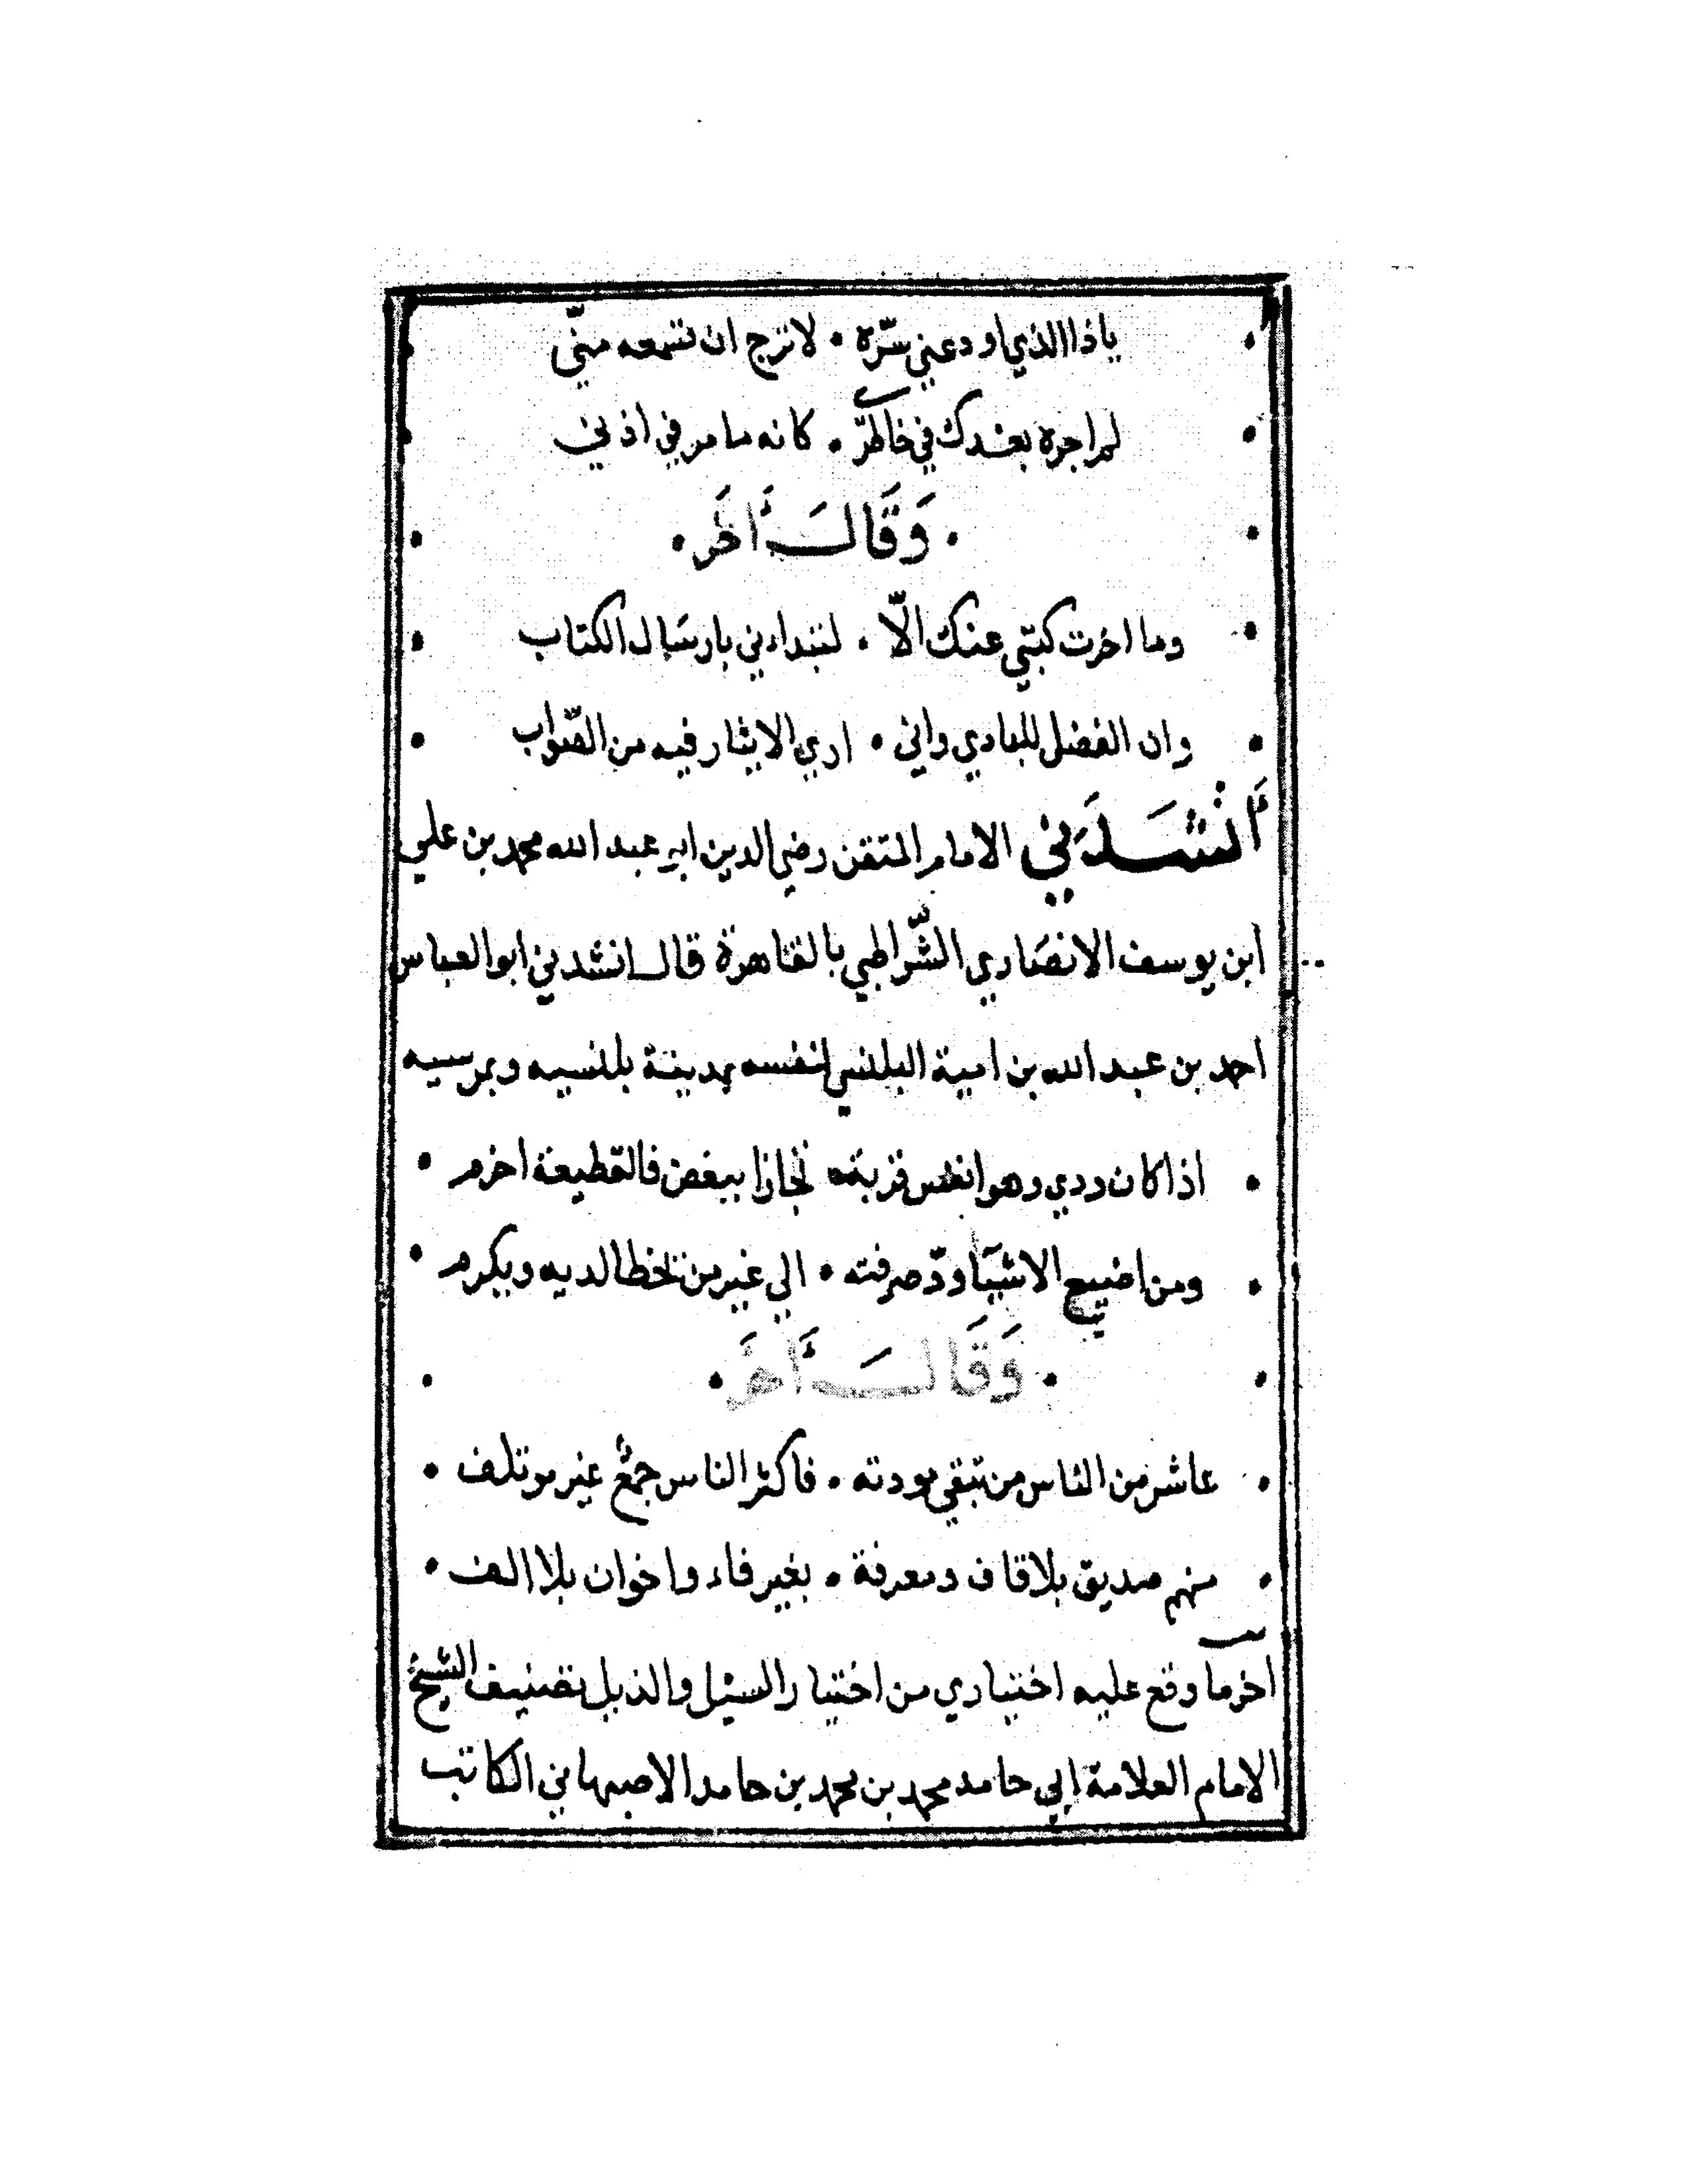 ياذا الذي اودعني سرّه • لا ترج ان تسمعه منّي
لم اجره بعدك في خاطري • كانه ما مر في اذني
• وَقَالَ أخَر •
وما اخرت كتبي عنك الّا • لتبداني بارسَال الكتاب
وان الفضل للبادي واني • اري الايثار فيه من الصّواب
أنْشَدَني الامام المتقن رضي الدين ابي عبد الله محمد بن علي
ابن يوسف الانصَاري الشّراطبي بالقاهرة قال انشدني ابو العباس
احمد بن عبد الله بن امية البلنسي لنفسه بمدينة بلنسيه وبمرسيه
اذا كان ودي وهو انفس قربة • تجازا ببغض فالقطيعة احزم •
ومن اضيع الاشيَآ ودّ صرفته • الي غير من تخطا لديه ويكرم •
• وَقَالَ أخَر •
عاشر من الناس من تبقي مودته • فاكثر الناس جمعٌ غير موتلف •
منهم صديق بلا قاف ومعرفة • بغير فاء واخوان بلا الف •
اخر ما وقع عليه اختياري من اختيار السيل والذيل تصنيف الشيخ
الامام العلامة ابي حامد محمد بن محمد بن حامد الاصبهاني الكاتب